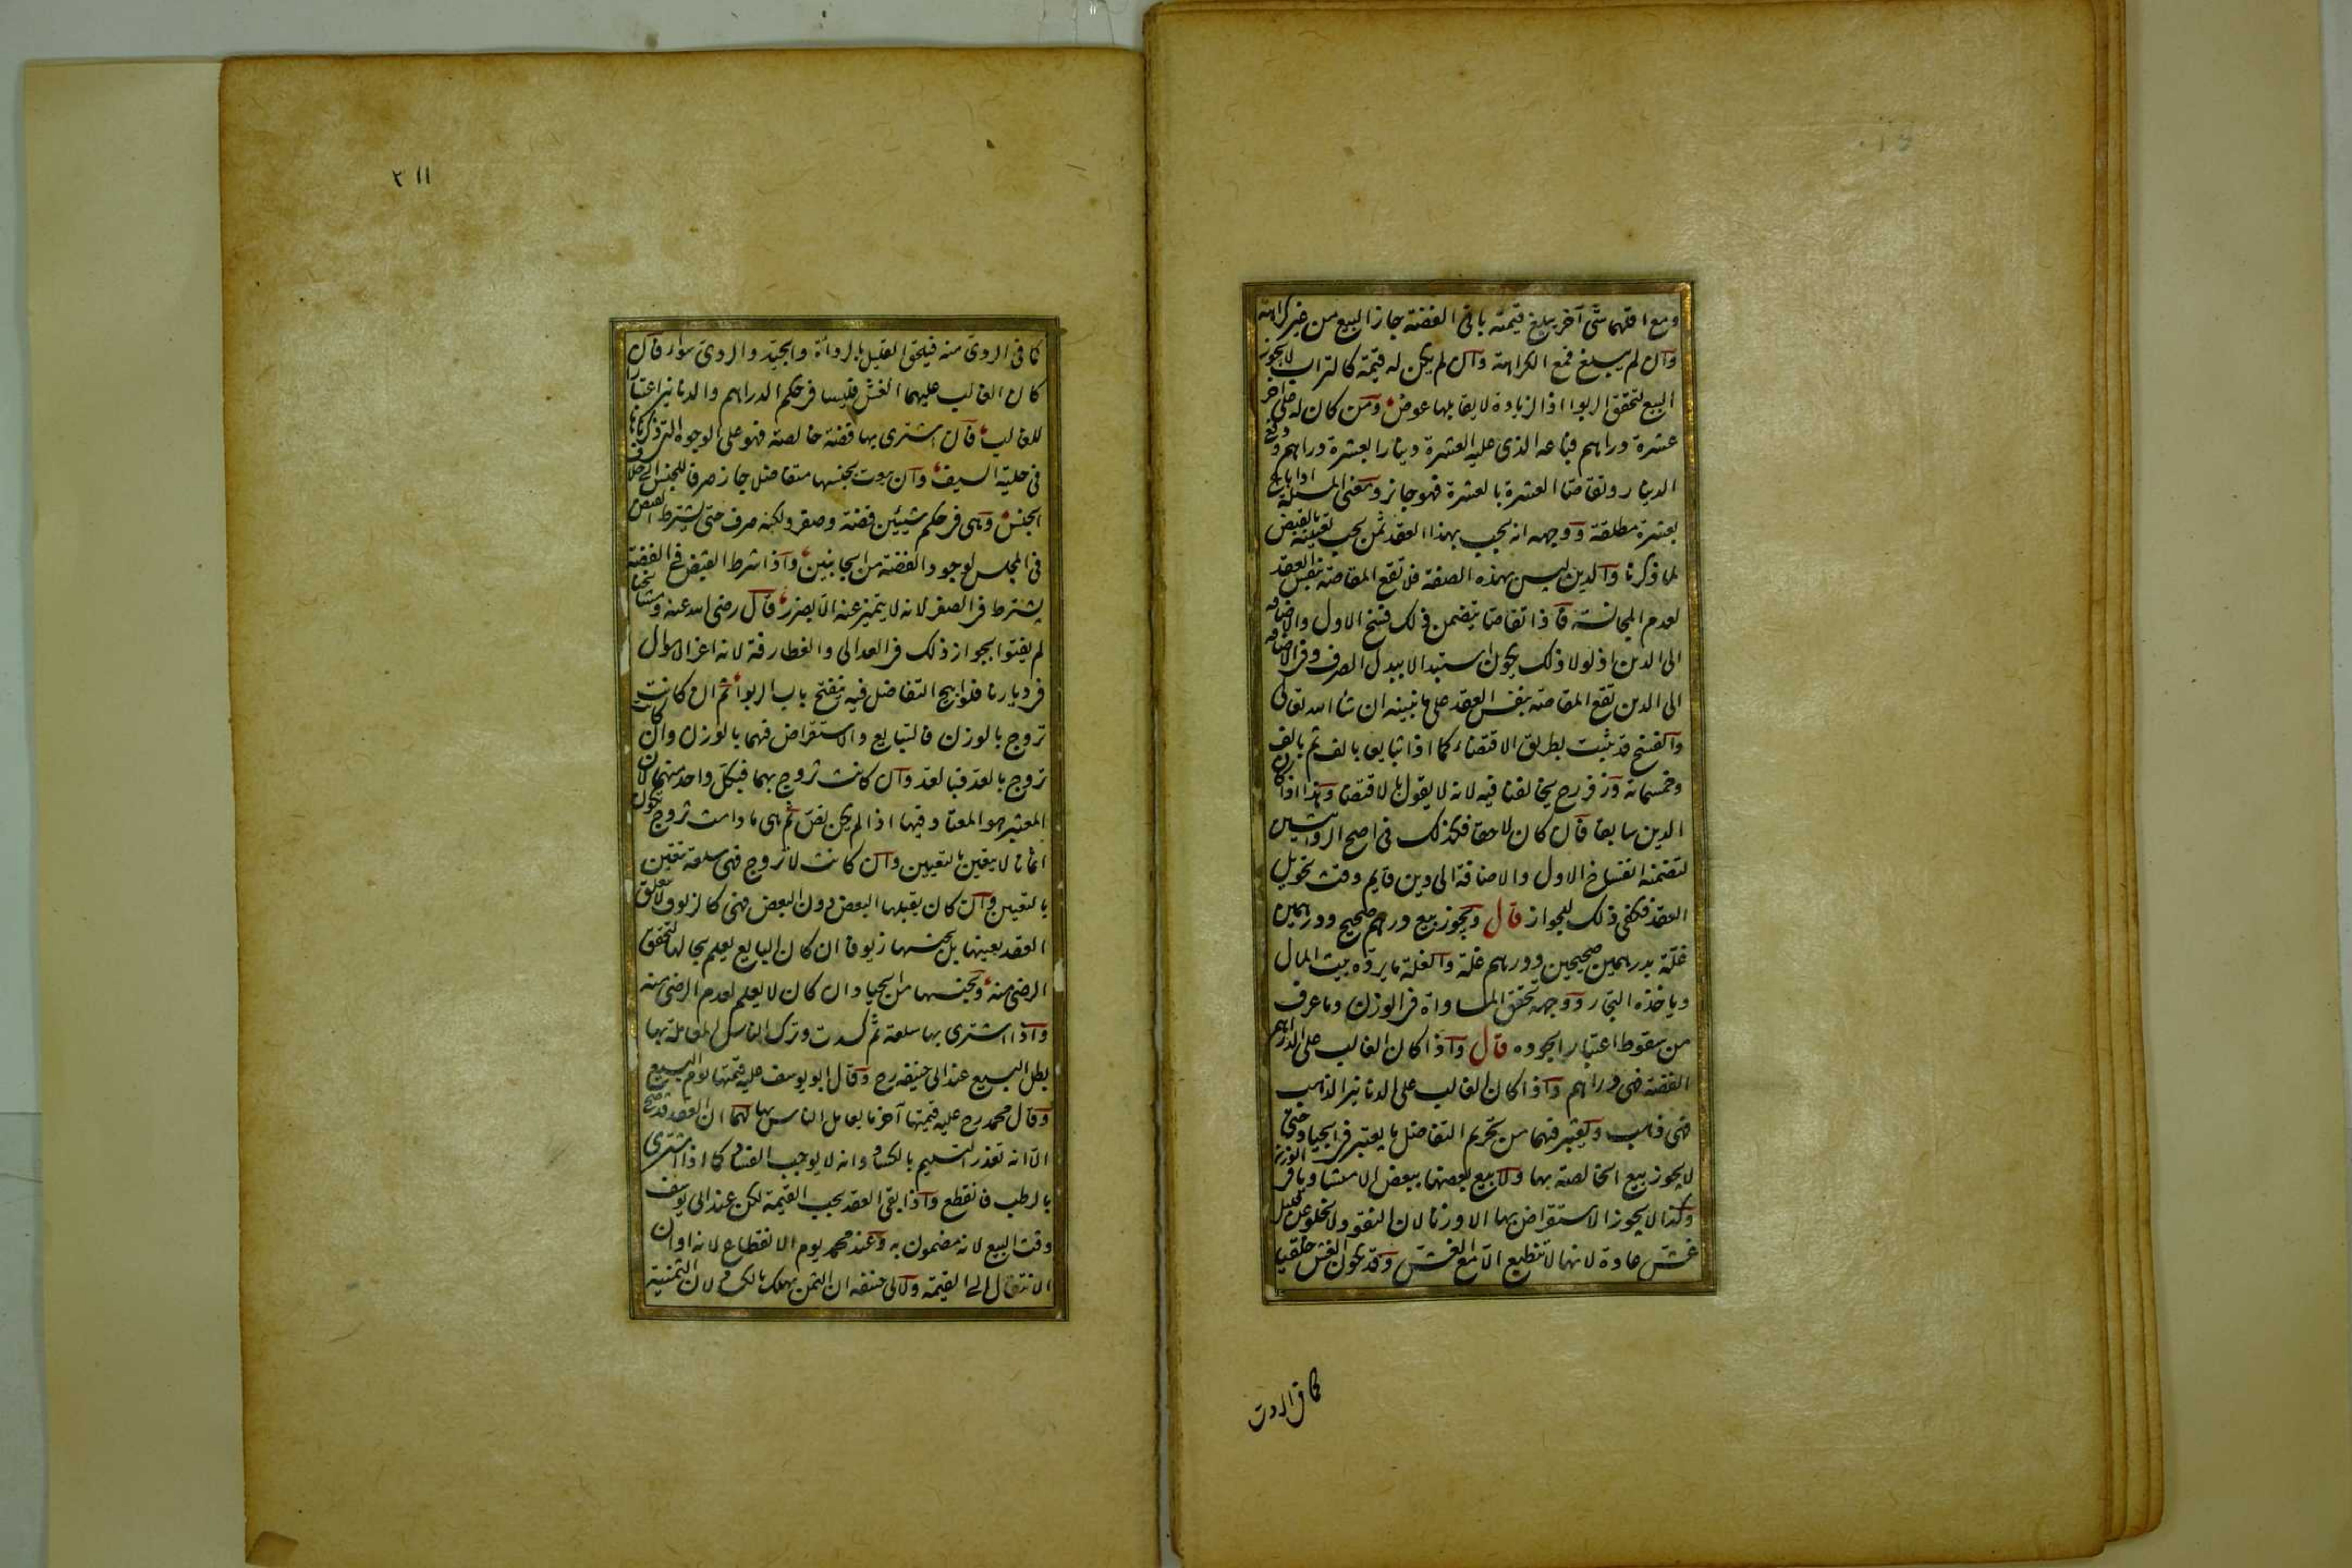 ومع اقلهما شی آخر یبلغ قیمته باقی الفضة جاز البیع من غیر کراهة
وان لم یبلغ فمع الکراهة وان لم یکن له قیمة کالتراب لایجوز
البیع لتحقق الربوا اذ الزیادة لا یقابلها عوض ومن کان له علی آخر
عشرة دراهم فباعه الذی علیه العشرة دینارا بعشرة دراهم ودفع
الدینار وتقاصا العشرة بالعشرة فهو جایز ومعنی المسئلة اذا باع
بعشرة مطلقة ووجهه انه یجب بهذا العقد ثمن یجب تعیینه بالقبض
لما ذکرنا والدین لیس بهذه الصفة فلا تقع المقاصة بنفس العقد
لعدم المجانسة فاذا تقاصا یتضمن ذلک فسخ الاول والاضافة
الی الدین اذ لولا ذلک یکون استبدالا ببدل الصرف وفی الاضافة
الی الدین تقع المقاصة بنفس العقد علی ما نبینه ان شاء الله تعالی
والفسخ قد یثبت بطریق الاقتضاء کما اذا تبایعا بالف ثم بالف
وخمسمائة وزفر رح یخالفنا فیه لانه لا یقول بالاقتضا وهذا اذا کان
الدین سابقا فان کان لاحقا فکذلک فی اصح الروایتین
لتضمنه انفساخ الاول والاضافة الی دین قایم وقت تحویل
العقد فکفی ذلک للجواز قال ویجوز بیع درهم صحیح ودرهمین
غلة بدرهمین صحیحین ودرهم غلة والغلة ما یرده بیت المال
ویاخذه التجار ووجهه تحقق المساواة فی الوزن وما عرف
من سقوط اعتبار الجوده قال واذا کان الغالب علی الدراهم
الفضة فهی دراهم واذا کان الغالب علی الدنانیر الذهب
فهی ذهب ویعتبر فیهما من تحریم التفاضل ما یعتبر فی الجیاد حتی
لا یجوز بیع الخالصة بها ولا بیع بعضها ببعض الا متساویا فی الوزن
وکذا لا یجوز الاستقراض بها الا وزنا لان النقود لا تخلو عن قلیل
غش عادة لانها لا تنطبع الا مع الغش وقد یکون الغش خلقیا
کما فی الردی
۲۱۱
کما فی الردی منه فیلحق القلیل بالرداة والجید والردی سواء فان
کان الغالب علیهما الغش فلیسا فی حکم الدراهم والدنانیر اعتبارا
للغالب فان اشتری بها فضة خالصة فهو علی الوجوه التی ذکرناها
فی حلیة السیف وان بیعت بجنسها متفاضلا جاز صرفا للجنس الی خلاف
الجنس وهی فی حکم شیئین فضة وصفر ولکنه صرف حتی یشترط القبض
فی المجلس لوجود الفضة من الجانبین واذا شرط القبض فی الفضة
یشترط فی الصفر لانه لا یتمیز عنه الا بضرر قال رضی الله عنه ومشایخنا
لم یفتوا بجواز ذلک فی العدالی والغطارفة لانه اعز الاموال
فی دیارنا فلو ابیح التفاضل فیه ینفتح باب الربوا ثم ان کانت
تروج بالوزن فالتبایع والاستقراض فیهما بالوزن وان کانت
تروج بالعد فبالعد وان کانت تروج بهما فبکل واحد منهما لان
المعتبر هو المعتاد فیهما اذا لم یکن نص ثم هی ما دامت تروج تکون
اثمانا لا یتعین بالتعیین وان کانت لا تروج فهی سلعة تتعین
بالتعیین وان کان یقبلها البعض دون البعض فهی کالزیوف لا یتعلق
العقد بعینها بل بجنسها زیوفا ان کان البایع یعلم بحالها لتحقق
الرضی منه وبجنسها من الجیاد ان کان لا یعلم لعدم الرضی منه
واذا اشتری بها سلعة ثم کسدت وترک الناس المعاملة بها
بطل البیع عند ابی حنیفه رح وقال ابو یوسف علیه قیمتها یوم البیع
وقال محمد رح علیه قیمتها آخر ما یعامل الناس بها لهما ان العقد قد صح
الا انه تعذر التسلیم بالکساد وانه لا یوجب الفساد کما اذا اشتری
بالرطب فانقطع واذا بقی العقد یجب القیمة لکن عند ابی یوسف
وقت البیع لانه مضمون به وعند محمد یوم الانقطاع لانه اوان
الانتقال الی القیمة ولابی حنیفه ان الثمن یهلک بالکساد لان الثمنیة